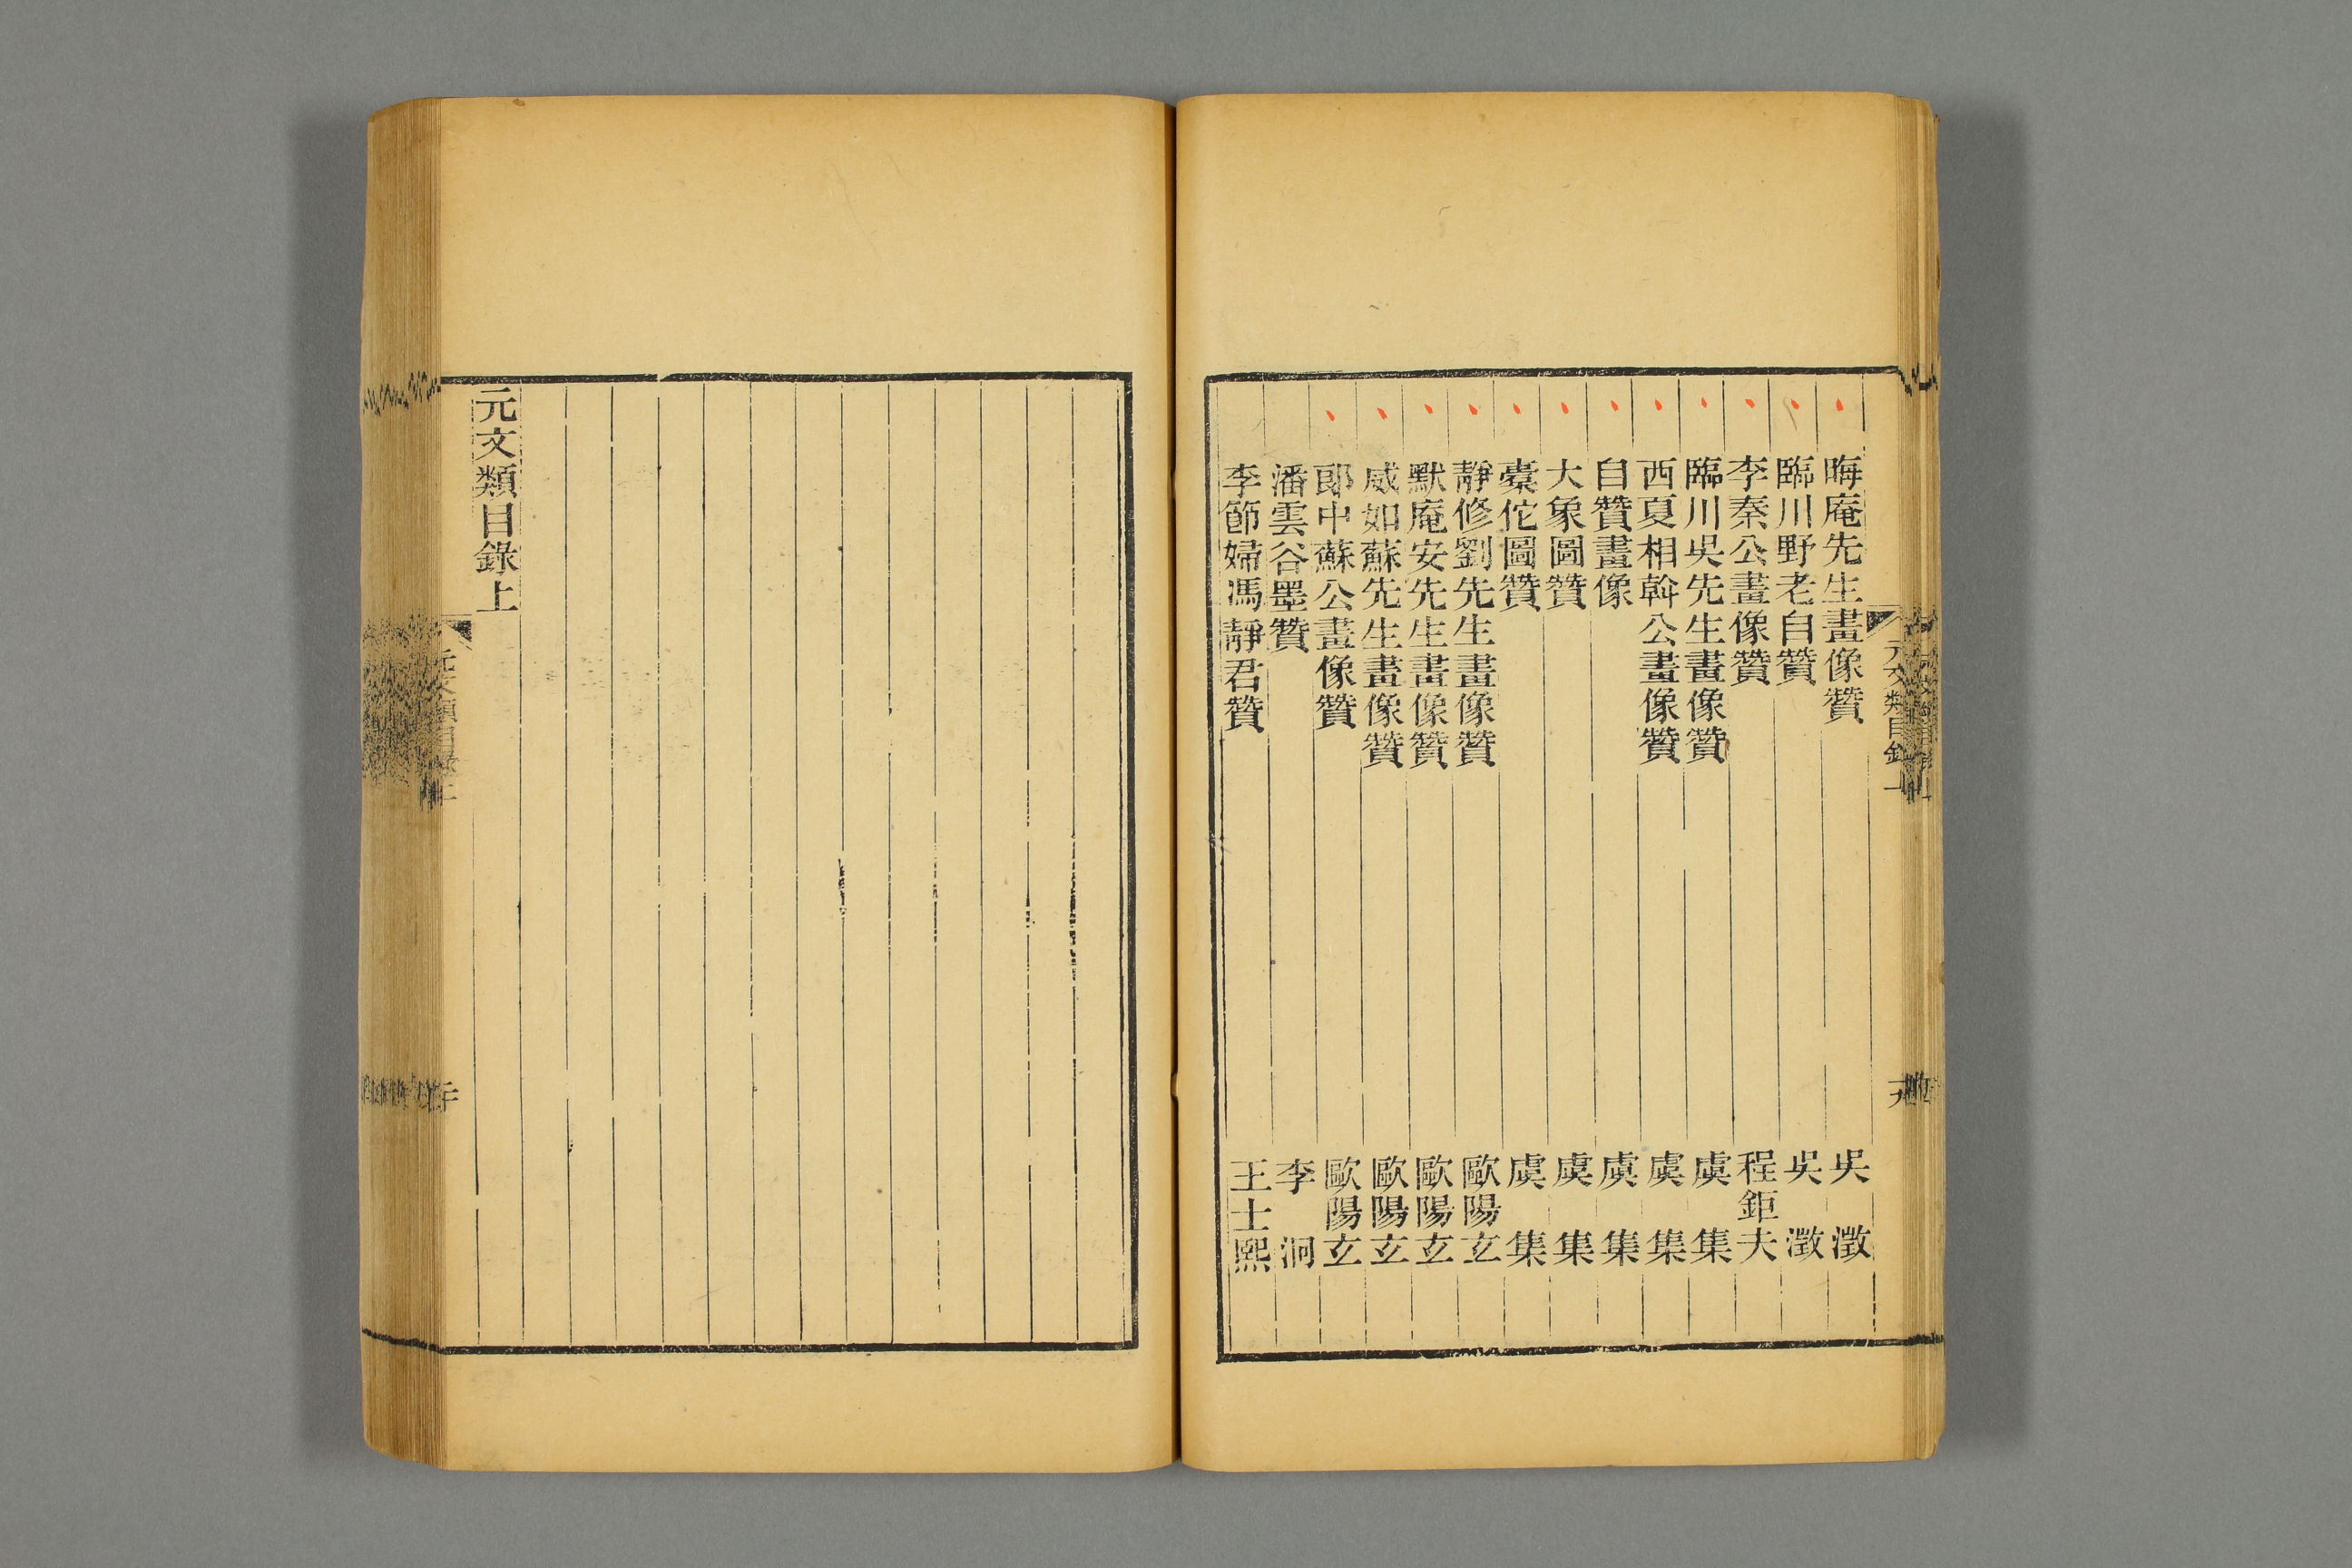 晦庵先生畫像贊 吳澂
臨川野老自贊 吳澂
李秦公畫像贊 程鉅夫
臨川吳先生畫像贊 虞集
西夏相斡公畫像贊 虞集
自贊畫像 虞集
大象圖贊 虞集
橐佗圖贊 虞集
靜修劉先生畫像贊 歐陽玄
默庵安先生畫像贊 歐陽玄
威如蘇先生畫像贊 歐陽玄
郎中蘇公畫像贊 歐陽玄
潘雲谷墨贊 李洞
李節婦馮靜君贊 王士熙
元文類目錄上